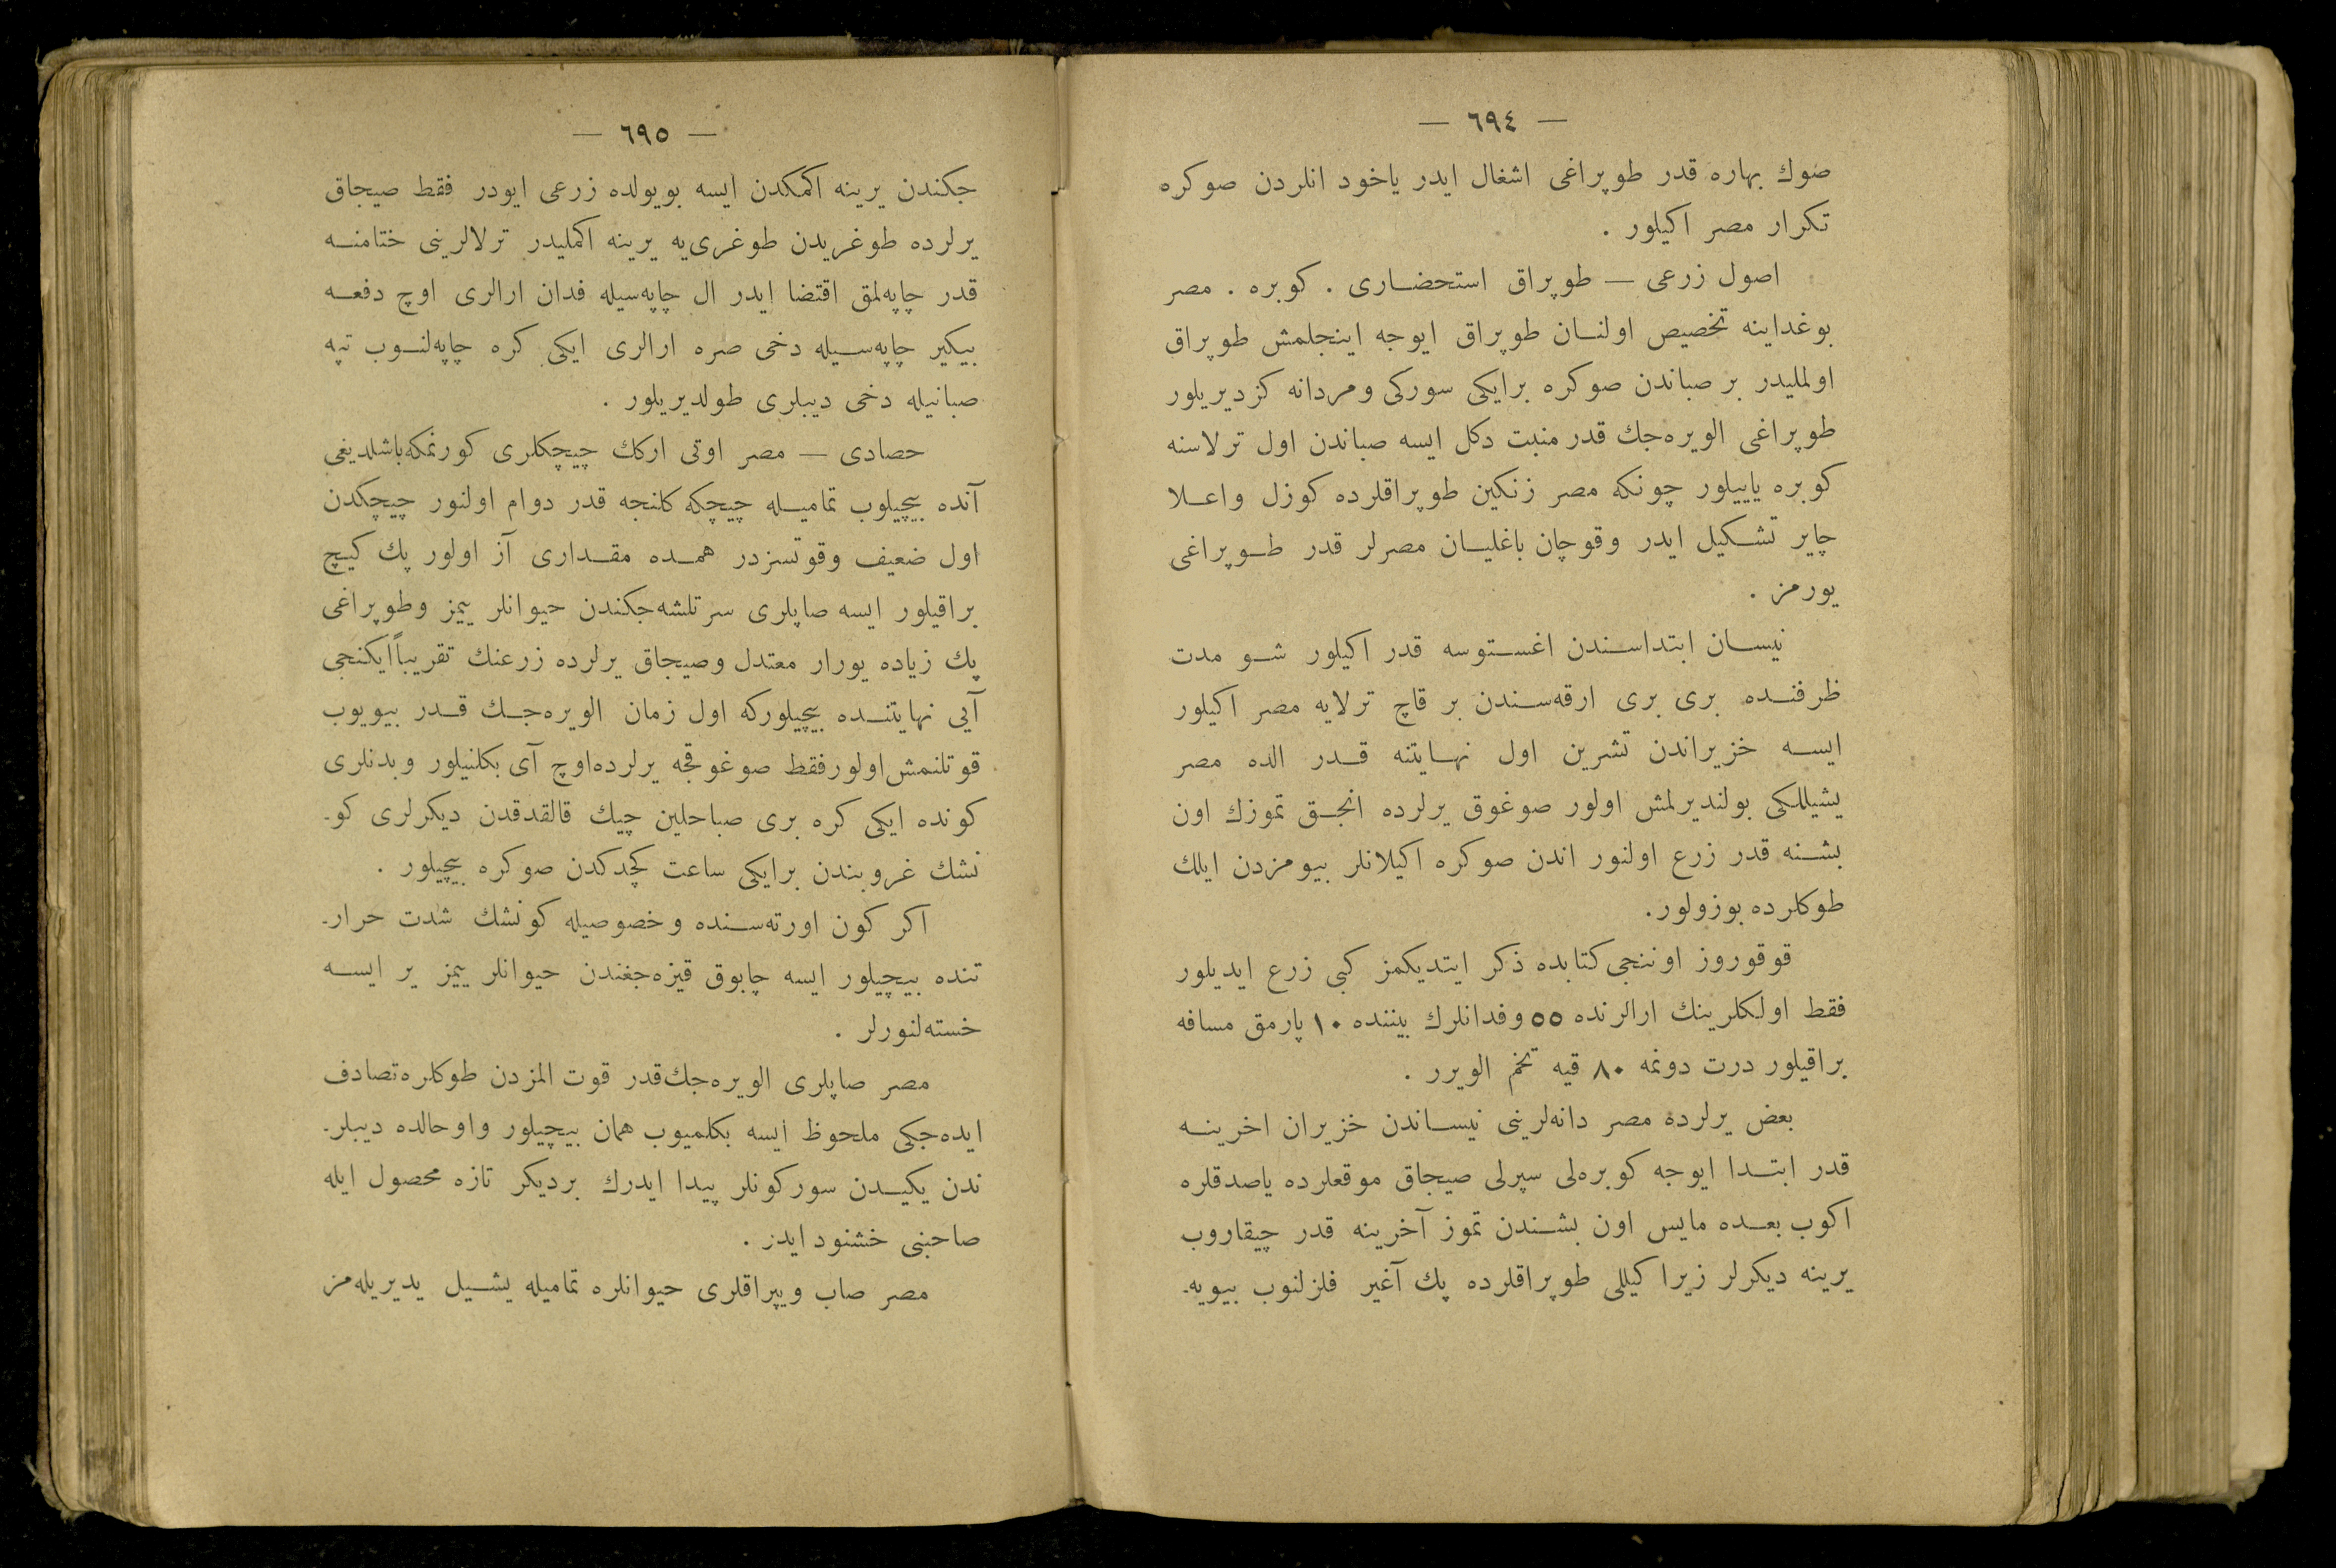 — ٦٩٤ —
صوك بهاره قدر طوپراغی اشغال ايدر ياخود انلردن صوكره
تكرار مصر اكيلور .
اصول زرعی — طوپراق استحضاری . كوبره . مصر
بوغداينه تخصيص اولنان طوپراق ايوجه اينجلمش طوپراق
اولمليدر بر صباندن صوكره برايكی سوركی ومردانه كزديريلور
طوپراغی الويره‌جك قدر منبت دكل ايسه صباندن اول ترلاسنه
كوبره ياييلور چونكه مصر زنكين طوپراقلرده كوزل واعلا
چاير تشكيل ايدر وقوچان باغليان مصرلر قدر طوپراغی
يورمز .
نيسان ابتداسندن اغستوسه قدر اكيلور شو مدت
ظرفنده بری بری ارقه‌سندن بر قاچ ترلايه مصر اكيلور
ايسه خزيراندن تشرين اول نهايتنه قدر الده مصر
يشيللكی بولنديرلمش اولور صوغوق يرلرده انجق تموزك اون
بشنه قدر زرع اولنور اندن صوكره اكيلانلر بيومزدن ايلك
طوكلرده بوزولور.
قوقوروز اوننجی كتابده ذكر ايتديكمز كبی زرع ايديلور
فقط اولكلرينك ارالرنده ٥٥ وفدانلرك بيننده ١٠ پارمق مسافه
براقيلور درت دونمه ٨٠ قيه تخم الويرر .
بعض يرلرده مصر دانه‌لرينی نيساندن خزيران اخرينه
قدر ابتدا ايوجه كوبره‌لی سپرلی صيجاق موقعلرده ياصدقلره
اكوب بعده مايس اون بشندن تموز آخرينه قدر چيقاروب
يرينه ديكرلر زيرا كيللی طوپراقلرده پك آغير فلزلنوب بيويه‌ـ
— ٦٩٥ —
جكندن يرينه اكمكدن ايسه بويولده زرعی ايودر فقط صيجاق
يرلرده طوغريدن طوغری‌يه يرينه اكمليدر ترلالرينی ختامنه
قدر چاپه‌لمق اقتضا ايدر ال چاپه‌سيله فدان ارالری اوچ دفعه
بيكير چاپه‌سيله دخی صره ارالری ايكی كره چاپه‌لنوب تپه
صبانيله دخی ديبلری طولديريلور .
حصادی — مصر اوتی اركك چيچكلری كورنمكه‌باشلديغی
آنده بيچيلوب تماميله چيچكه كلنجه قدر دوام اولنور چيچكدن
اول ضعيف وقوتسزدر همده مقداری آز اولور پك كيچ
براقيلور ايسه صاپلری سرتلشه‌جكندن حيوانلر ييمز وطوپراغی
پك زياده يورار معتدل وصيجاق يرلرده زرعنك تقريباً ايكنجی
آيی نهايتنده بيچيلوركه اول زمان الويره‌جك قدر بيويوب
قوتلنمش‌اولورفقط صوغوقجه يرلرده‌اوچ آی بكلنيلور وبدنلری
كونده ايكی كره بری صباحلين چيك قالقدقدن ديكرلری كو‌ـ
نشك غروبندن برايكی ساعت كچدكدن صوكره بيچيلور .
اكر كون اورته‌سنده وخصوصيله كونشك شدت حرار‌ـ
تنده بيچيلور ايسه چابوق قيزه‌جغندن حيوانلر ييمز ير ايسه
خسته‌لنورلر .
مصر صاپلری الويره‌جك‌قدر قوت المزدن طوكلره‌تصادف
ايده‌جكی ملحوظ ايسه بكلميوب همان بيچيلور واوحالده ديبلر‌ـ
ندن يكيدن سوركونلر پيدا ايدرك برديكر تازه محصول ايله
صاحبنی خشنود ايدر .
مصر صاب ويپراقلری حيوانلره تماميله يشيل يديريله‌مز